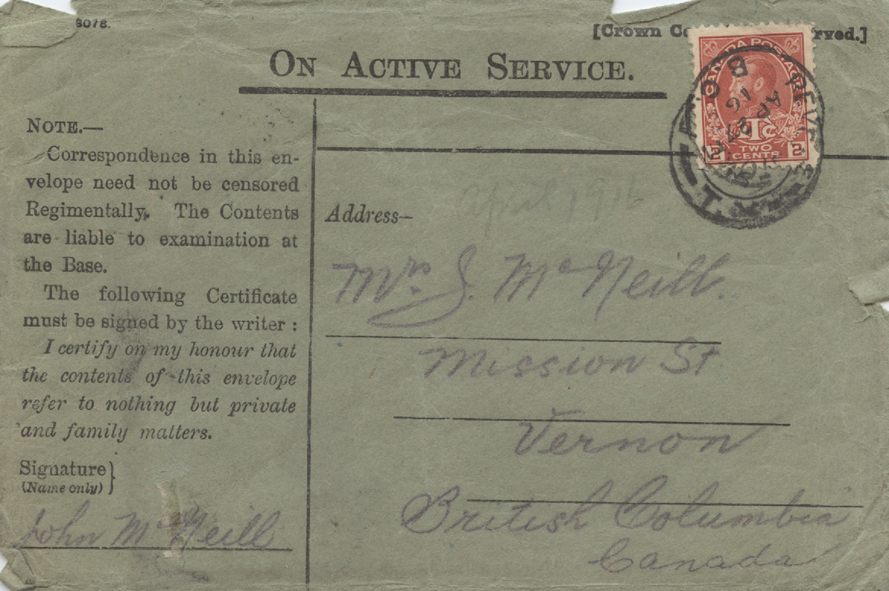 3078.
[Crown Co rved.]
ON ACTIVE SERVICE.
CANADA POSTAGE
1TC
2 TWO CENTS 2
AP
16
B
NOTE.—
Correspondence in this en-
velope need not be censored
Regimentally. The Contents
are liable to examination at
the Base.
The following Certificate
must be signed by the writer :
I certify on my honour that
the contents of this envelope
refer to nothing but private
and family matters.
Signature}
(Name only)
John McNeill
April 1916
Address—
Mrs J. McNeill.
Mission St
Vernon
British Columbia
Canada